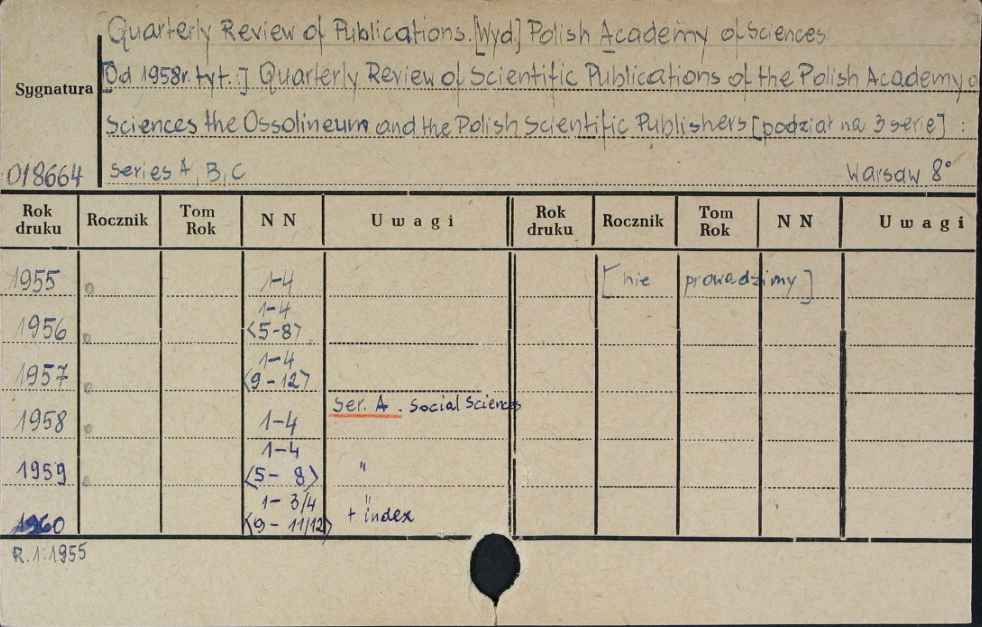 Quarterly Review of Publications. [Wyd.] Polish Academy of Sciences
[Od 1958r. tyt.:] Quarterly Review of Scientific Publications of the Polish Academy o
Sygnatura
Sciences the Ossolineum and the Polish Scientific Publishers [podział na 3 serie] :
018664 Series A, B, C Warsaw 8°
Rok druku Rocznik Tom Rok NN Uwagi Rok druku Rocznik Tom Rok NN Uwagi
1955 1-4 [nie prowadzimy]
1956 1-4 <5-8>
1957 1-4 <9-12>
1958 1-4 Ser. A. Social Sciences
1959 1-4 <5-8> "
1960 1-3/4 <9-11/12> " + index
R.1:1955